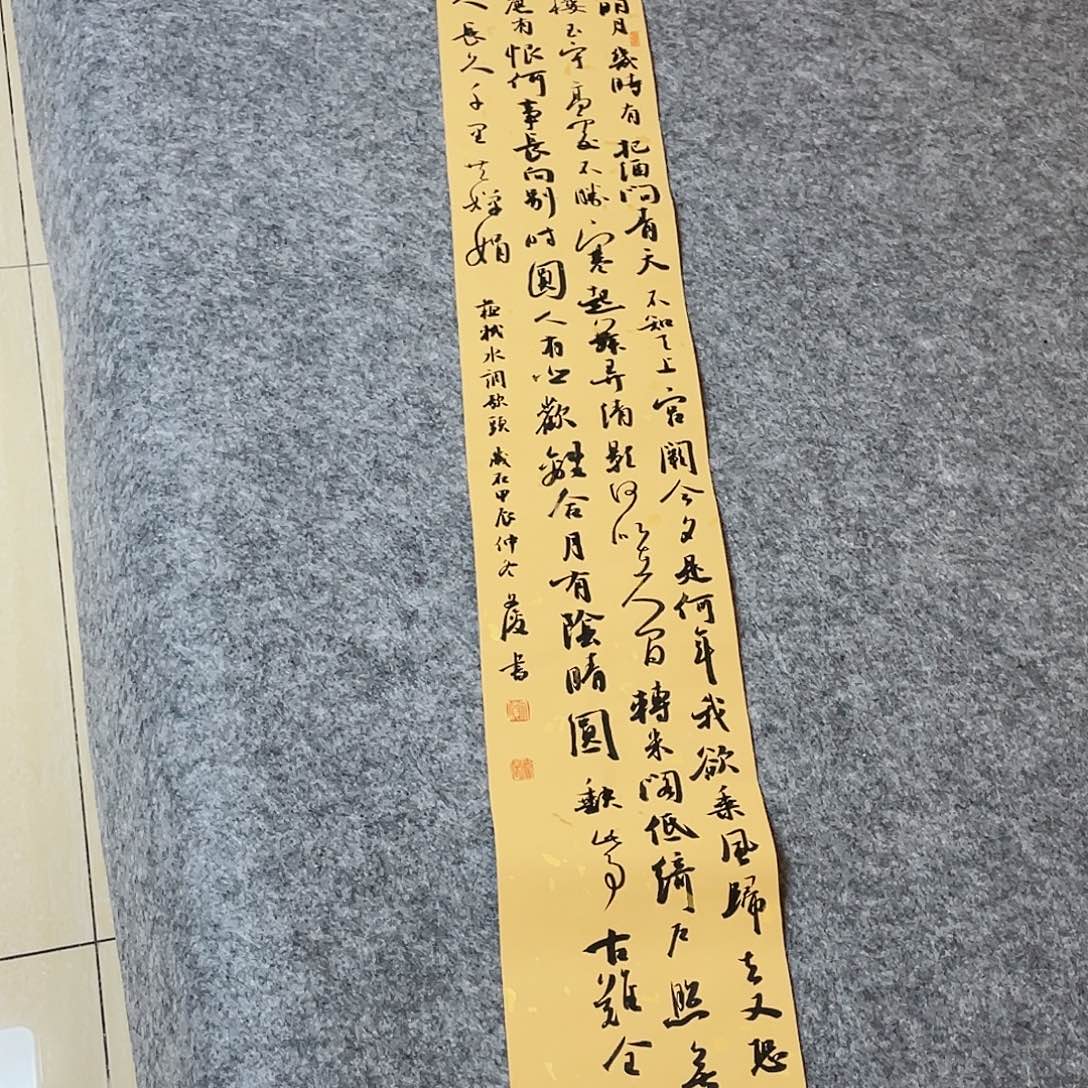 明月幾時有把酒問青天不知天上宮闕今夕是何年我欲乘風歸去又恐
樓玉宇高處不勝寒起舞弄清影何似在人間轉朱閣低綺戶照無
應有恨何事長向別時圓人有悲歡離合月有陰晴圓缺此事古難全
人長久千里共嬋娟 蘇軾水調歌頭 歲在甲辰仲冬 書